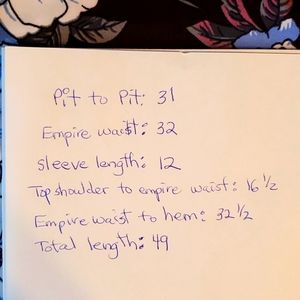 Pit to Pit: 31
Empire waist: 32
sleeve length: 12
Top shoulder to empire waist: 16 1/2
Empire waist to hem: 32 1/2
Total length: 49